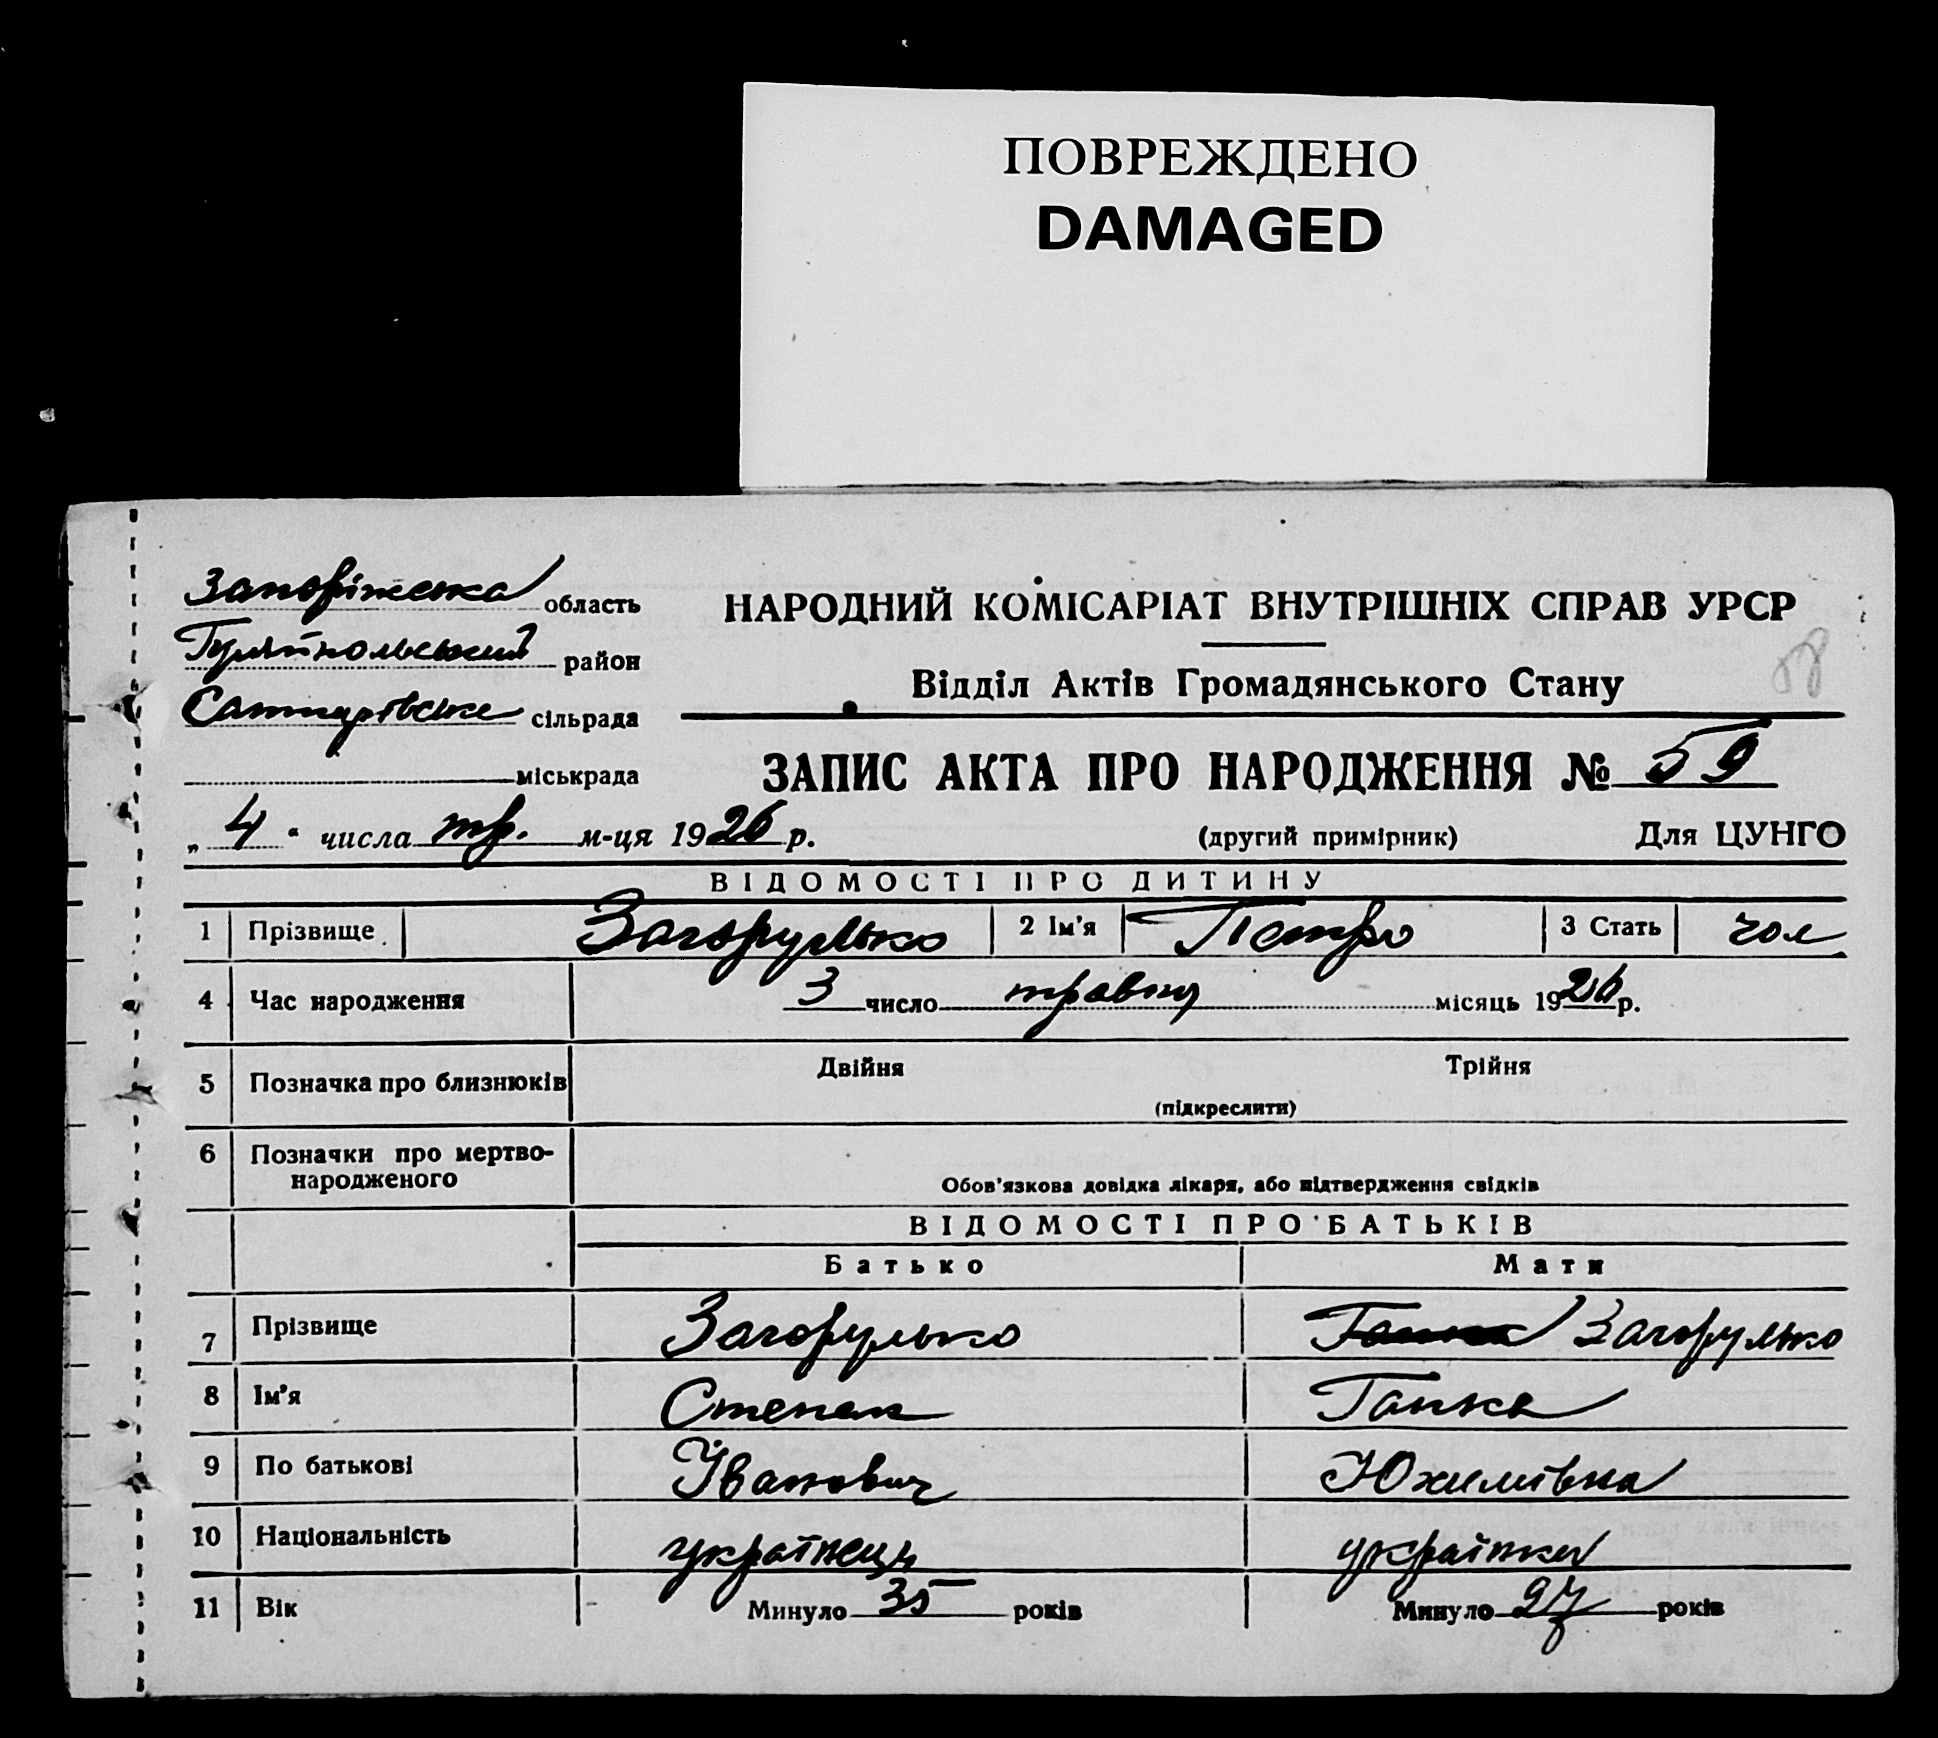 ПОВРЕЖДЕНО
DAMAGED
Запоріжська область
Гуляйпольський район
сільрада
міськрада
НАРОДНИЙ КОМІСАРІАТ ВНУТРІШНІХ СПРАВ УРСР
Відділ Актів Громадянського Стану
ЗАПИС АКТА ПРО НАРОДЖЕННЯ № 59
„ 4 " числа тр. м-ця 1926 р.
(другий примірник) Для ЦУНГО
ВІДОМОСТІ ПРО ДИТИНУ
1 Прізвище Загорулько 2 Ім'я Петро 3 Стать чол
4 Час народження 3 число травня місяць 1926 р.
5 Позначка про близнюків Двійня Трійня
(підкреслити)
6 Позначки про мертво-
народженого
Обов'язкова довідка лікаря, або підтвердження свідків
ВІДОМОСТІ ПРО БАТЬКІВ
Батько Мати
7 Прізвище Загорулько Ганна Загорулько
8 Ім'я Степан Ганна
9 По батькові Іванович Юхимівна
10 Національність українець українка
11 Вік Минуло 35 років Минуло 27 років